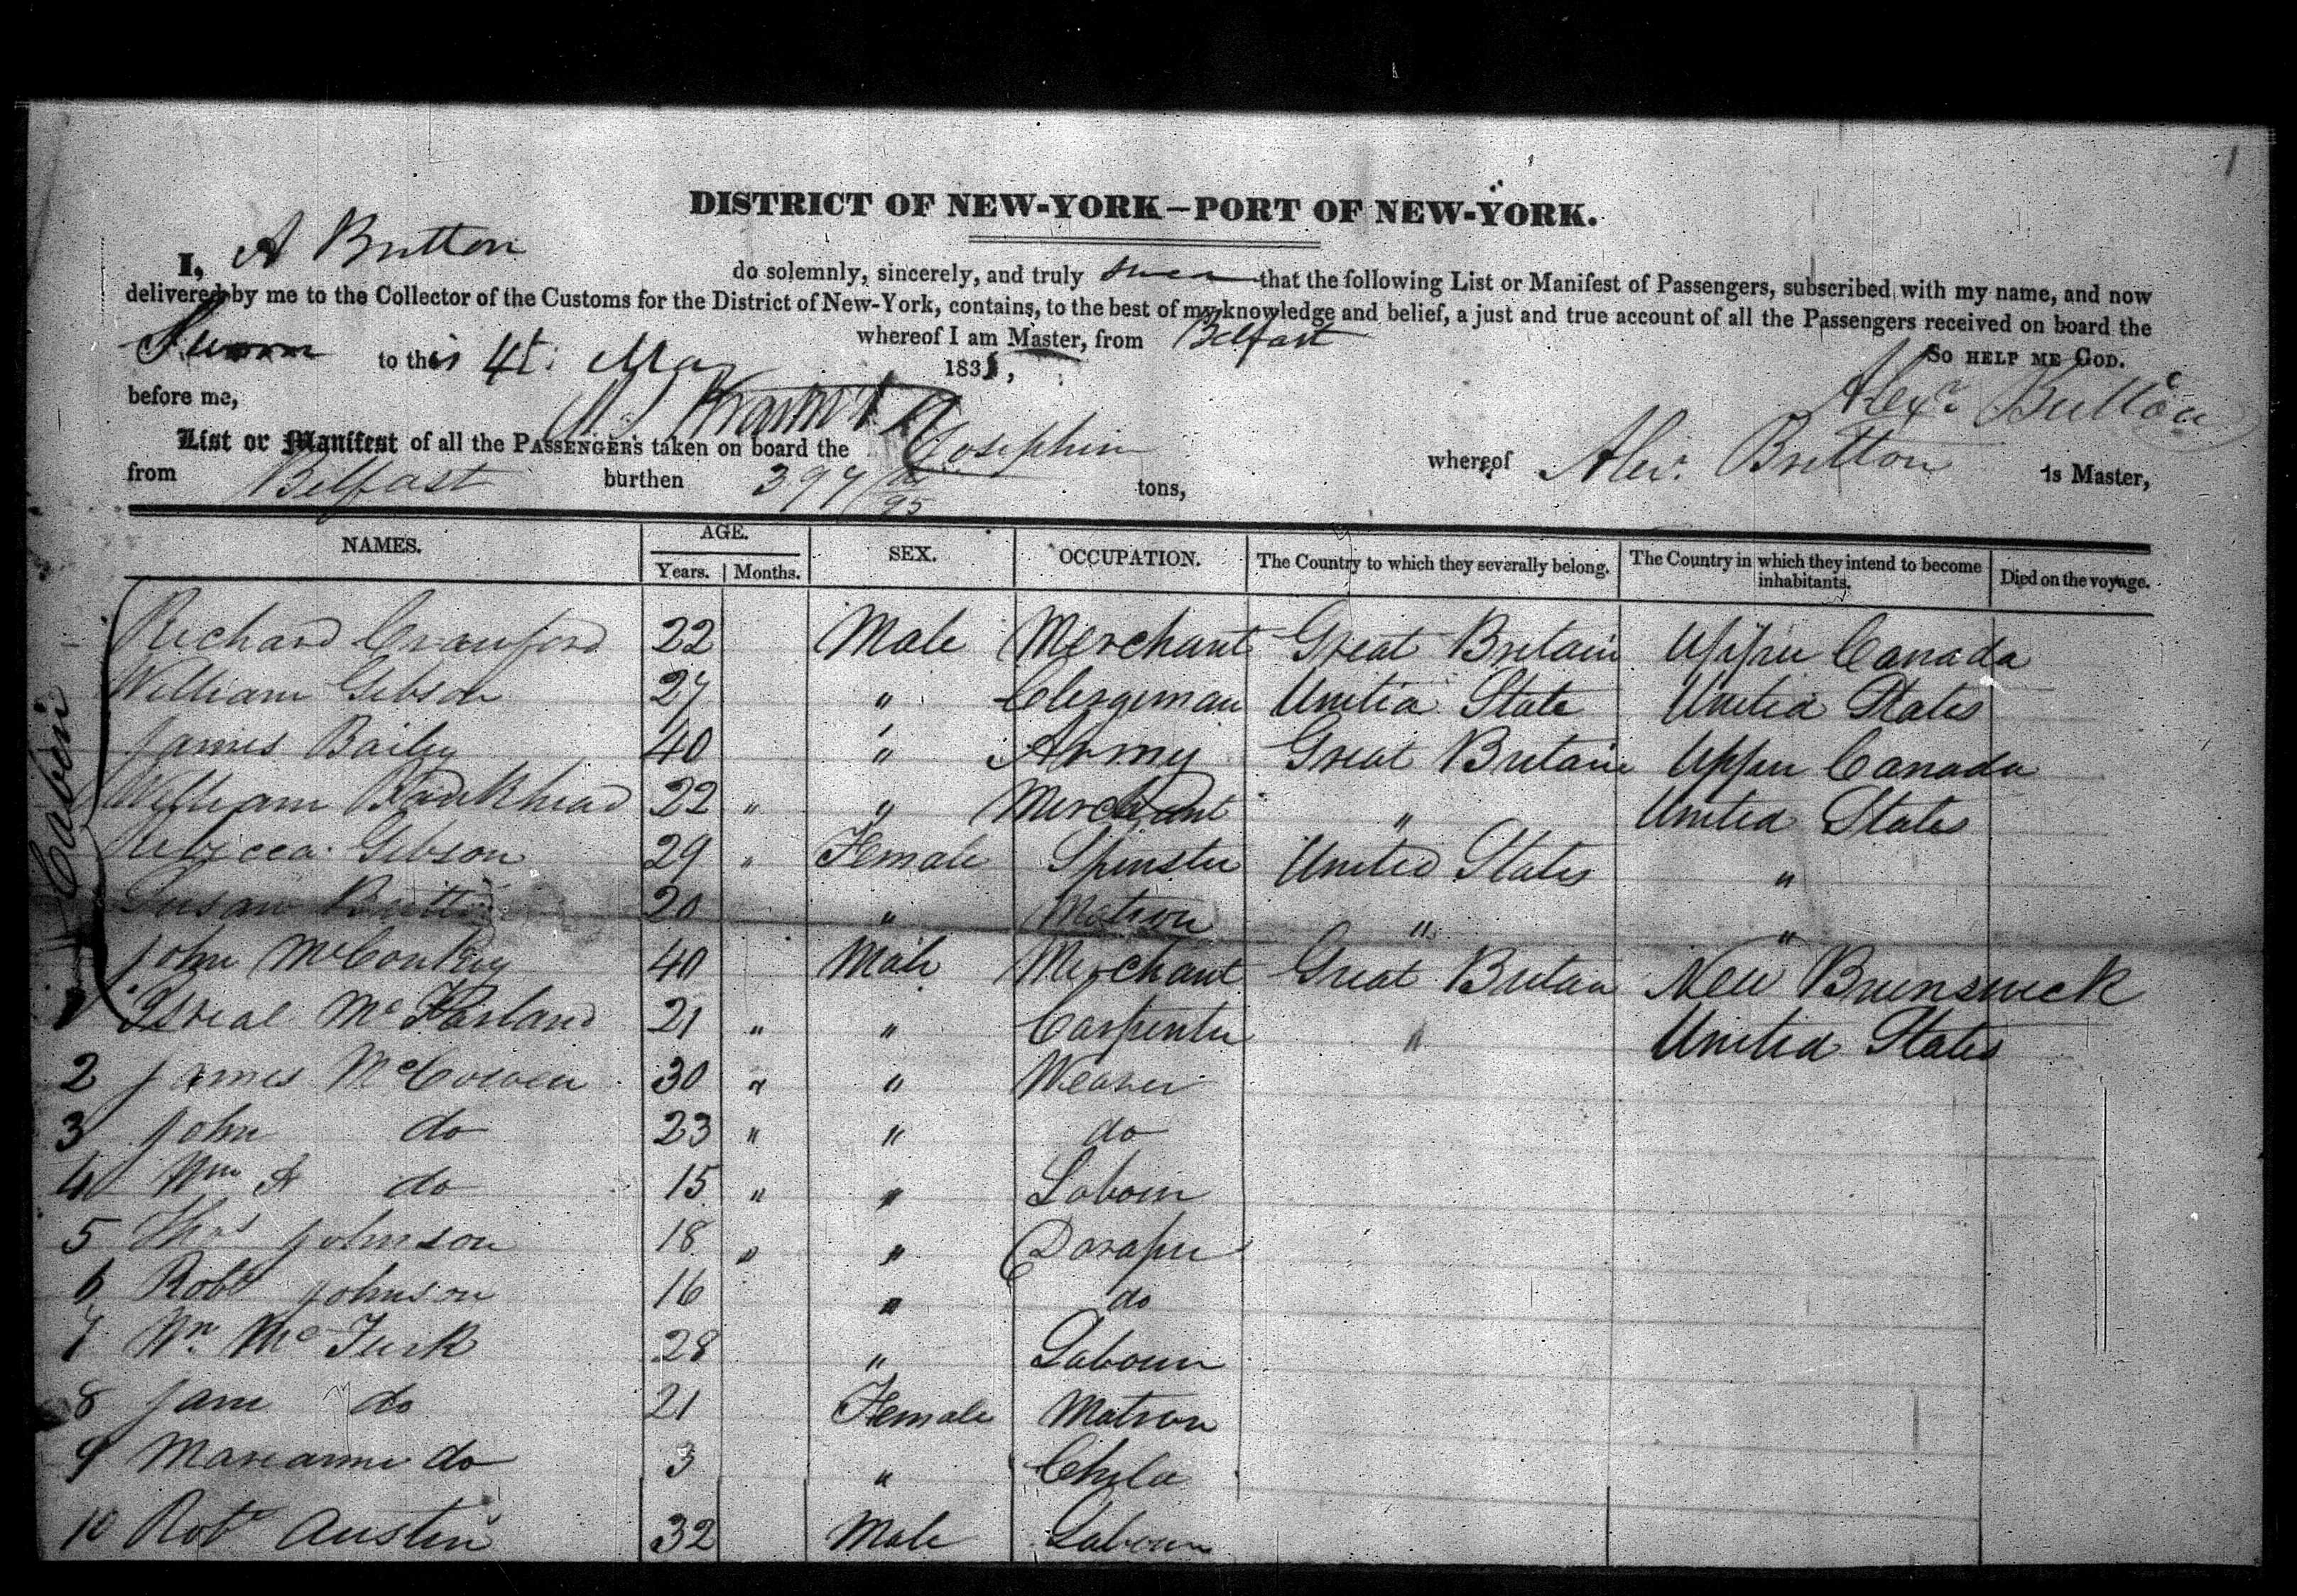 DISTRICT OF NEW-YORK—PORT OF NEW-YORK.
I, A Britton do solemnly, sincerely, and truly swear that the following List or Manifest of Passengers, subscribed with my name, and now
delivered by me to the Collector of the Customs for the District of New-York, contains, to the best of my knowledge and belief, a just and true account of all the Passengers received on board the
whereof I am Master, from Belfast
Sworn to this 4t: May 183 , So HELP ME GOD.
before me, Alexr. Britton
List or Manifest of all the PASSENGERS taken on board the Josephin whereof Alexr. Britton is Master,
from Belfast burthen 397 /95 tons,
NAMES. AGE. SEX. OCCUPATION. The Country to which they severally belong. The Country in which they intend to become inhabitants. Died on the voyage.
Years. Months.
Cabin
Richard Crawford 22 Male Merchant Great Britain Upper Canada
William Gibson 27 " Clergeman United State United States
James Bailey 40 " Army Great Britain Upper Canada
William Bankhead 22 " " Merchant " United States
Rebecca Gibson 29 " Female Spinster United States "
Susan Britton 20 " Matron " "
John McConkey 40 Male Merchant Great Britain New Brunswick
1 Isreal McFarland 21 " " Carpenter " United States
2 James McCowen 30 " " Weaver
3 John do 23 " " do
4 Wm A do 15 " " Labour
5 Thos Johnson 18 " " Draper
6 Robt Johnson 16 " do
7 Wm McTurk 28 " Labour
8 Jane do 21 Female Matron
9 Marianne do 3 " Child
10 Robt Austin 32 Male Labour